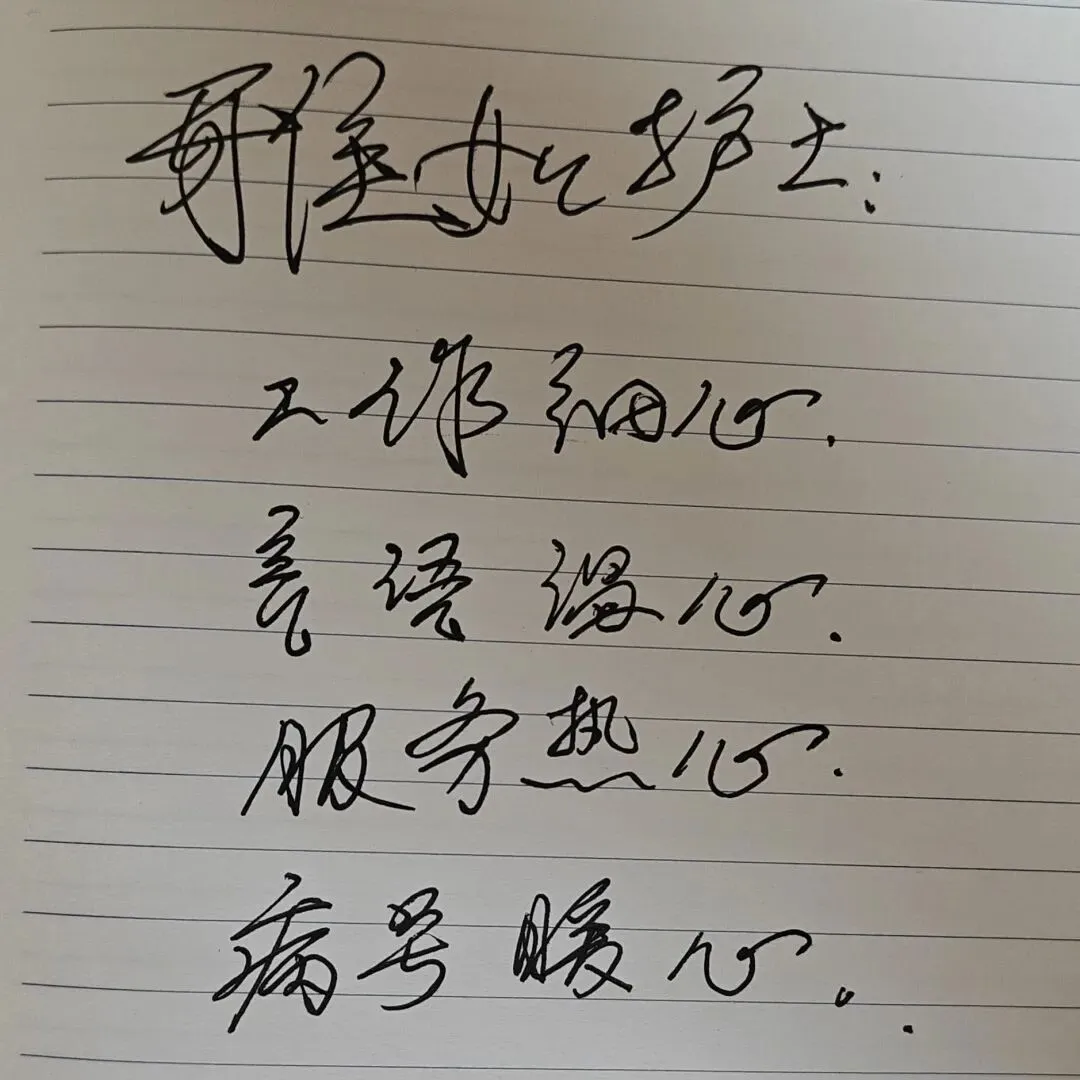 如护士:
工作细心.
言语温心.
服务热心.
病号暖心.